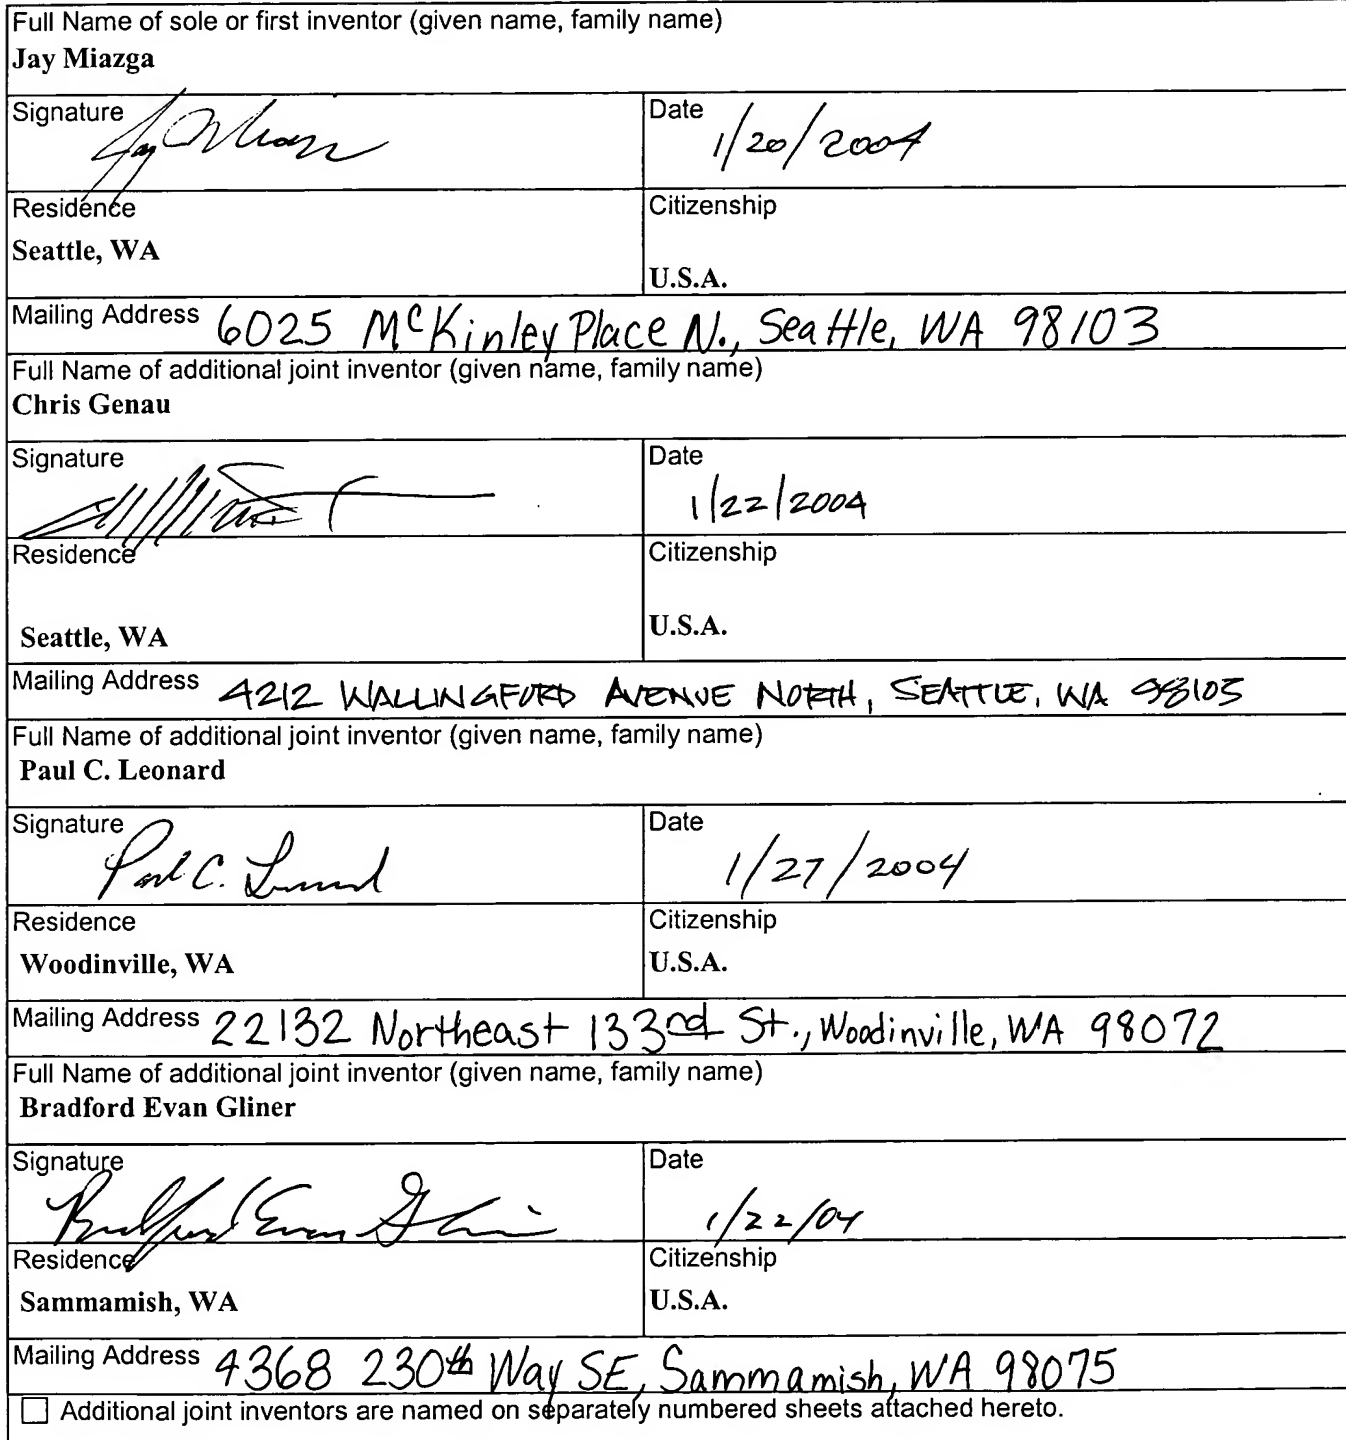 Full Name of sole or first inventor (given name, family name)
Jay Miazga
Signature
Date 1/20/2004
Residence
Citizenship
Seattle, WA
U.S.A.
Mailing Address 6025 McKinley Place N., Seattle, WA 98103
Full Name of additional joint inventor (given name, family name)
Chris Genau
Signature
Date
1/22/2004
Residence
Citizenship
Seattle, WA
U.S.A.
Mailing Address 4212 WALLINGFORD AVENUE NORTH, SEATTLE, WA 98103
Full Name of additional joint inventor (given name, family name)
Paul C. Leonard
Signature
Paul C. Leonard
Date
1/27/2004
Residence
Citizenship
Woodinville, WA
U.S.A.
Mailing Address 22132 Northeast 133rd St., Woodinville, WA 98072
Full Name of additional joint inventor (given name, family name)
Bradford Evan Gliner
Signature
Bradford Evan Gliner
Date
1/22/04
Residence
Citizenship
Sammamish, WA
U.S.A.
Mailing Address 4368 230th Way SE, Sammamish, WA 98075
Additional joint inventors are named on separately numbered sheets attached hereto.